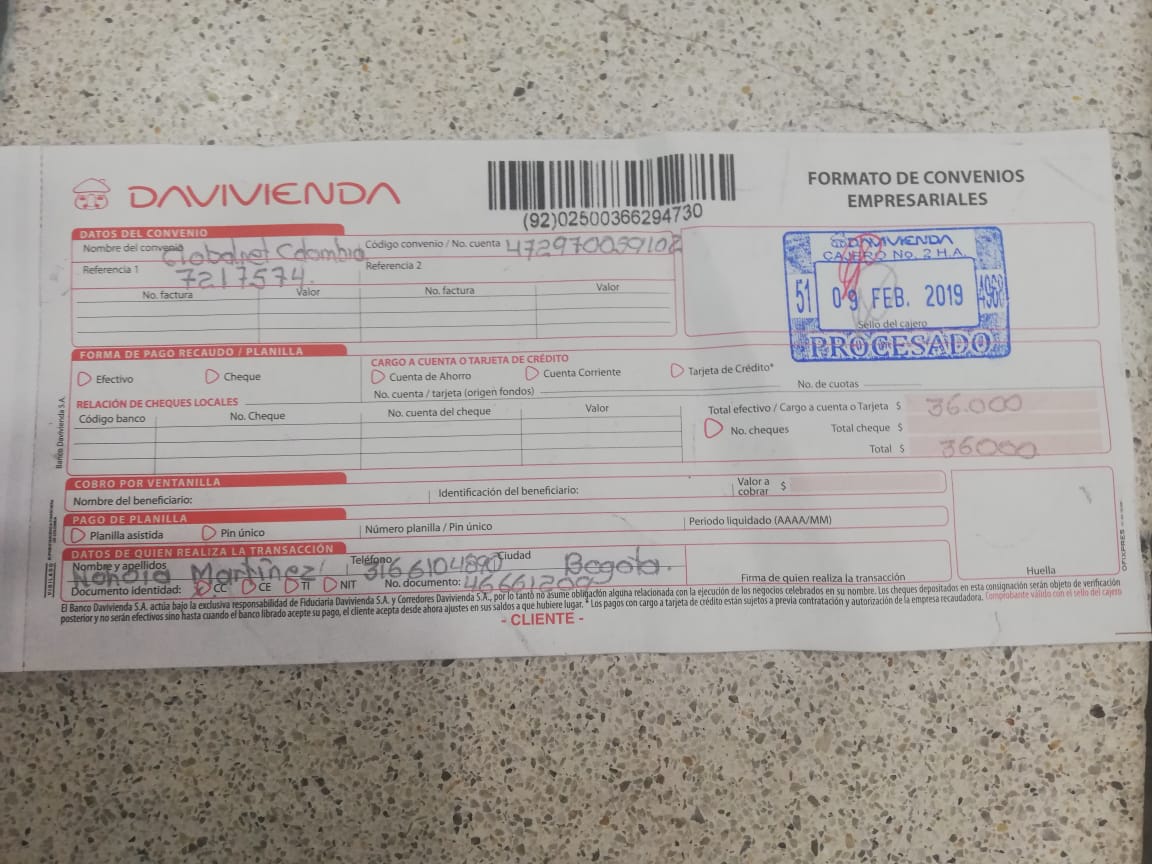 DAVIVIENDA
(92)02500366294730
FORMATO DE CONVENIOS
EMPRESARIALES
DATOS DEL CONVENIO
Nombre del convenio Globalnet Colombia Código convenio / No. cuenta 472970059102
Referencia 1 7217574. Referencia 2
No. factura Valor No. factura Valor
DAVIVIENDA
CAJERO No. 2 H.A.
51 09 FEB. 2019
Sello del cajero
PROCESADO
FORMA DE PAGO RECAUDO / PLANILLA
Efectivo Cheque
CARGO A CUENTA O TARJETA DE CRÉDITO
Cuenta de Ahorro Cuenta Corriente Tarjeta de Crédito*
No. cuenta / tarjeta (origen fondos) No. de cuotas
RELACIÓN DE CHEQUES LOCALES
Código banco No. Cheque No. cuenta del cheque Valor
Total efectivo / Cargo a cuenta o Tarjeta $ 36.000
No. cheques Total cheque $
Total $ 36000
Banco Davivienda S.A.
COBRO POR VENTANILLA
Nombre del beneficiario: Identificación del beneficiario: Valor a cobrar $
PAGO DE PLANILLA
Planilla asistida Pin único Número planilla / Pin único Periodo liquidado (AAAA/MM)
DATOS DE QUIEN REALIZA LA TRANSACCIÓN
Nombre y apellidos Martinez Teléfono 3166104890 Ciudad Bogota.
Documento identidad: CC CE TI NIT No. documento: 46661200
Firma de quien realiza la transacción
Huella
El Banco Davivienda S.A. actúa bajo la exclusiva responsabilidad de Fiduciaria Davivienda S.A. y Corredores Davivienda S.A., por lo tanto no asume obligación alguna relacionada con la ejecución de los negocios celebrados en su nombre. Los cheques depositados en esta consignación serán objeto de verificación
posterior y no serán efectivos sino hasta cuando el banco librado acepte su pago, el cliente acepta desde ahora ajustes en sus saldos a que hubiere lugar. * Los pagos con cargo a tarjeta de crédito están sujetos a previa contratación y autorización de la empresa recaudadora. Comprobante válido con el sello del cajero
- CLIENTE -